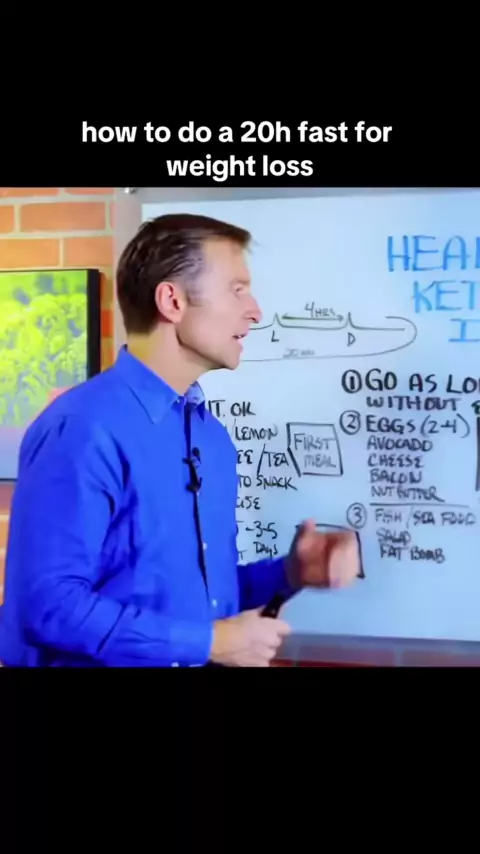 how to do a 20h fast for
weight loss
HEAL
KET
I
4 HRS
L
D
IT. OK
/LEMON
EE/TEA
TO SNACK
-3-5
DAYS
T
FIRST
MEAL
① GO AS LO
WITHOUT
② EGGS (2-4)
AVOCADO
CHEESE
BACON
NUT BUTTER
③ FISH/SEA FOOD
SALAD
FAT BOMB